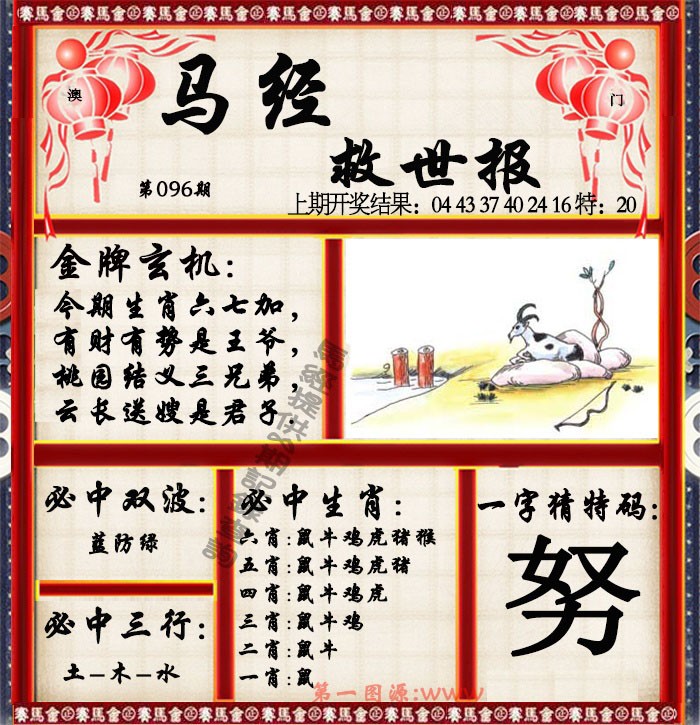 賽馬會正金賽馬會正金賽馬會正金賽馬會正金賽馬會
澳
门
马经
救世报
第096期
上期开奖结果：04 43 37 40 24 16 特：20
金牌玄机：
今期生肖六七加，
有财有势是王爷，
桃园结义三兄弟，
云长送嫂是君子.
必中双波：
蓝防绿
必中三行：
土-木-水
必中生肖：
六肖:鼠牛鸡虎猪猴
五肖:鼠牛鸡虎猪
四肖:鼠牛鸡虎
三肖:鼠牛鸡
二肖:鼠牛
一肖:鼠
一字猜特码:
努
第一图源:www